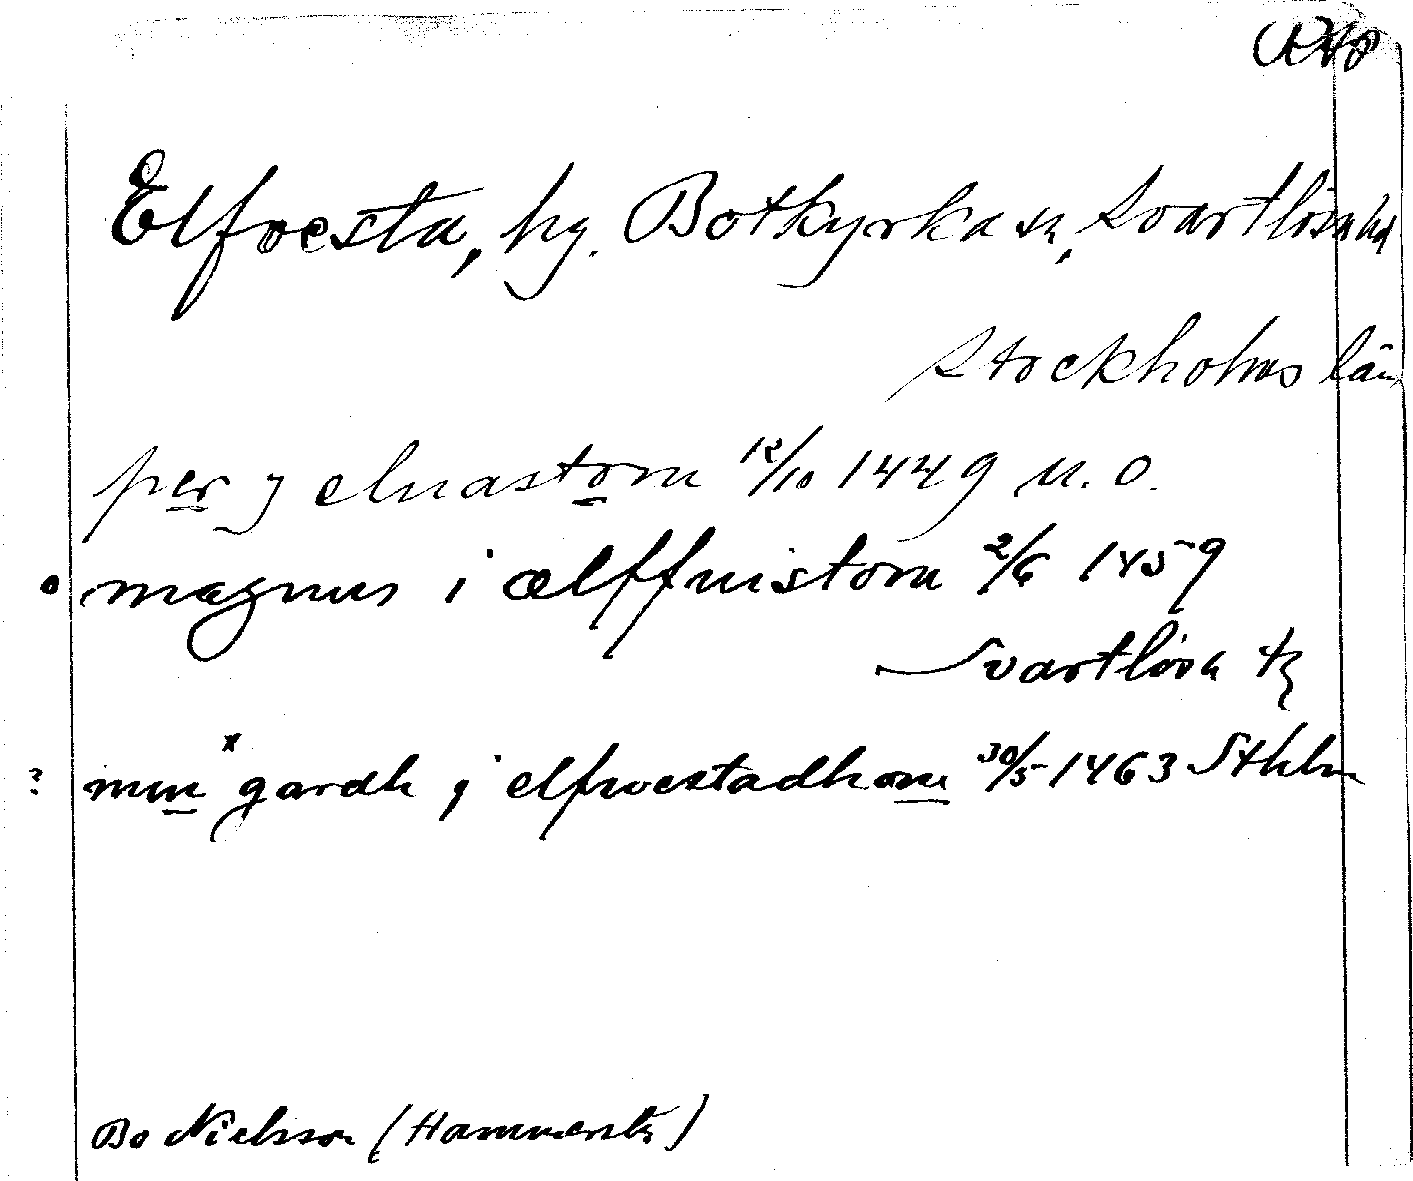 Elfvesta, by. Botkyrka sn, Svartlösa hd
Stockholms län
per j eluastom 12/10 1449 u. o.
o magnus i ælffuistom 2/6 1459
Svartlösa tg
? min x gardh j elfwestadhom 30/5 1463 Sthlm
Bo Nielsson (Hammersta)